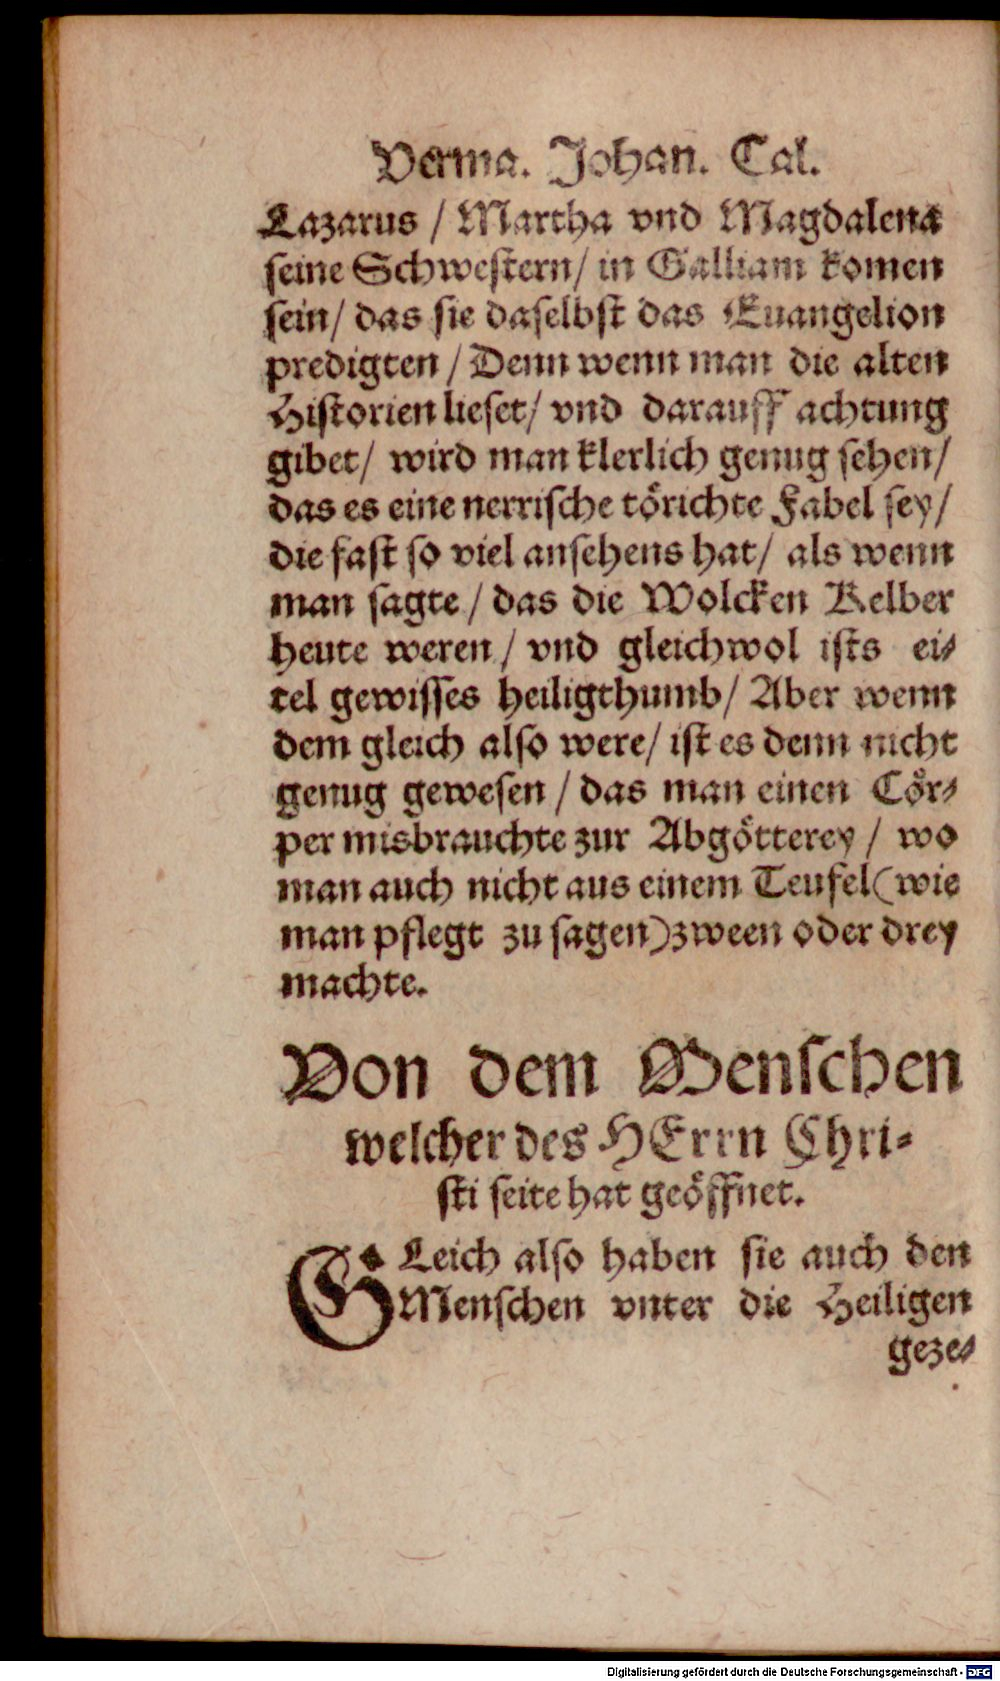 Verma. Johan. Cal.
Lazarus / Martha vnd Magdalena
seine Schwestern/ in Galliam komen
sein/ das sie daselbst das Euangelion
predigten / Denn wenn man die alten
Historien lieset/ vnd darauff achtung
gibet/ wird man klerlich genug sehen/
das es eine nerrische törichte Fabel sey/
die fast so viel ansehens hat/ als wenn
man sagte / das die Wolcken Kelber
heute weren / vnd gleichwol ists ei-
tel gewisses heiligthumb/ Aber wenn
dem gleich also were/ ist es denn nicht
genug gewesen / das man einen Cör-
per misbrauchte zur Abgötterey / wo
man auch nicht aus einem Teufel (wie
man pflegt zu sagen) zween oder drey
machte.
Von dem Menschen
welcher des HErrn Chri-
sti seite hat geöffnet.
GLeich also haben sie auch den
Menschen vnter die Heiligen
geze-
Digitalisierung gefördert durch die Deutsche Forschungsgemeinschaft - DFG